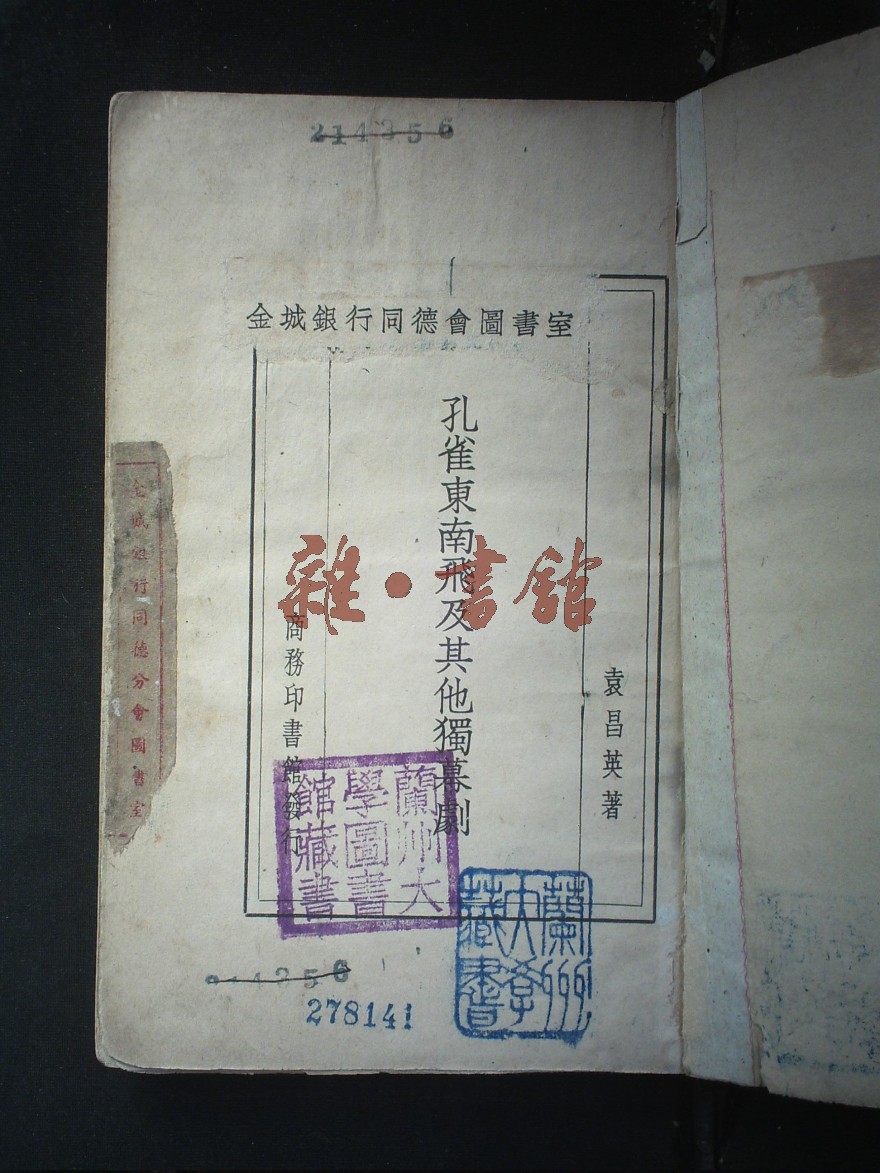 214356
金城銀行同德會圖書室
袁昌英著
孔雀東南飛及其他獨幕劇
商務印書館發行
雜·書館
金城銀行同德分會圖書室
蘭州大
學圖書
館藏書
蘭州
大學
藏書
214356
278141